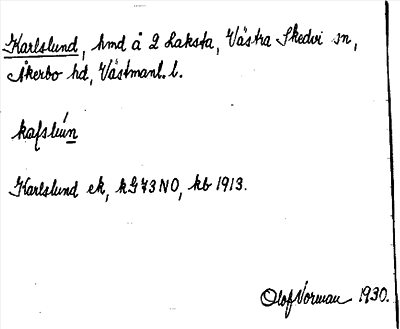 Karlslund, hmd å 2 Laksta, Västra Skedvi sn,
Åkerbo hd, Västmanl. l.
Karlslund ek, kG 73 NO, kb 1913.
Olof Norman 1930.